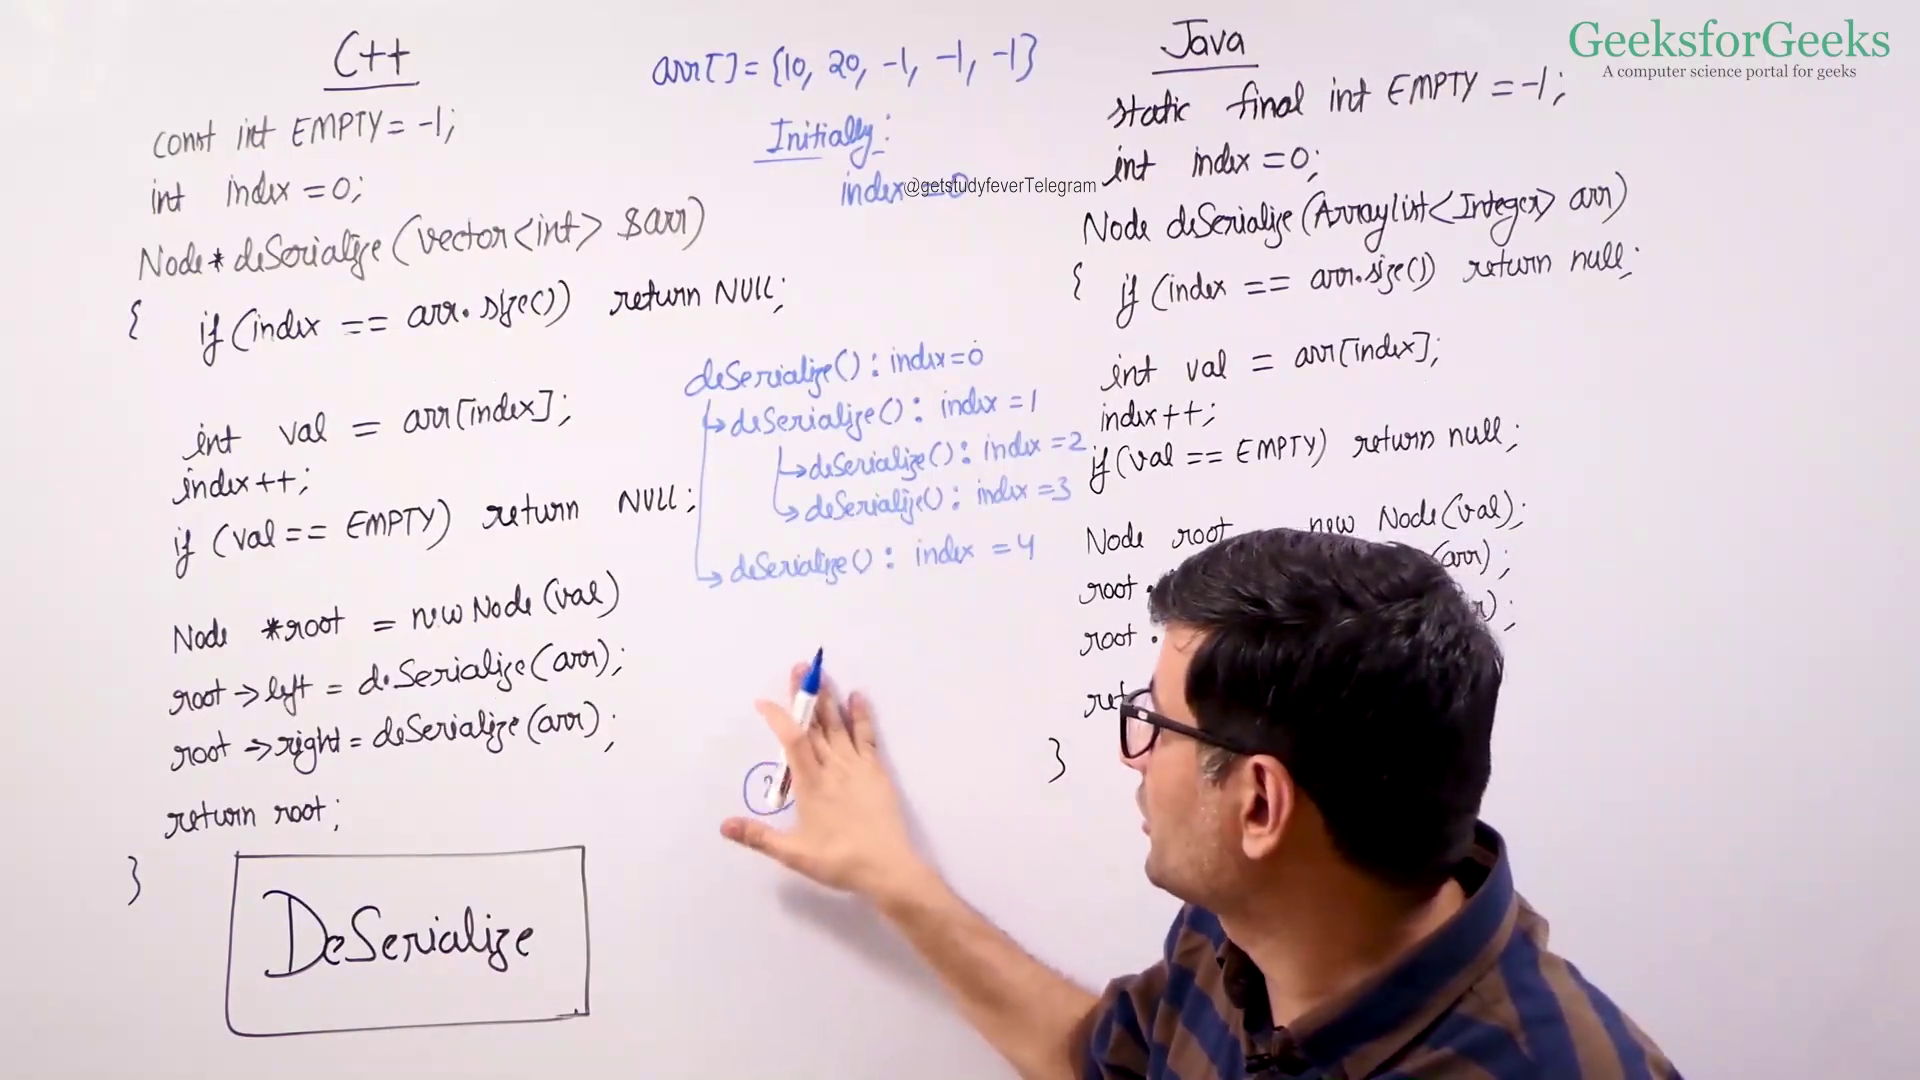 C++
const int EMPTY = -1;
int index = 0;
Node* deSerialize(vector<int> &arr)
{ if (index == arr.size()) return NULL;
int val = arr[index];
index++;
if (val == EMPTY) return NULL;
Node *root = new Node(val)
root->left = deSerialize(arr);
root->right = deSerialize(arr);
return root;
}
DeSerialize
arr[] = {10, 20, -1, -1, -1}
Initially:
index = 0
@getstudyfeverTelegram
deSerialize() : index = 0
deSerialize() : index = 1
deSerialize() : index = 2
deSerialize() : index = 3
deSerialize() : index = 4
Java
static final int EMPTY = -1;
int index = 0;
Node deSerialize(ArrayList<Integer> arr)
{ if (index == arr.size()) return null;
int val = arr[index];
index++;
if (val == EMPTY) return null;
Node root new Node(val);
root. (arr);
root. );
}
GeeksforGeeks
A computer science portal for geeks